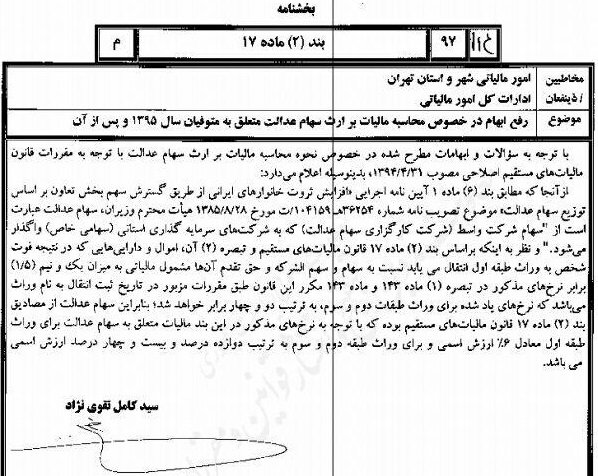 بخشنامه
۱۶ا ۹۷ بند (۲) ماده ۱۷ م
مخاطبین / ذینفعان امور مالیاتی شهر و استان تهران
ادارات کل امور مالیاتی
موضوع رفع ابهام در خصوص محاسبه مالیات بر ارث سهام عدالت متعلق به متوفیان سال ۱۳۹۵ و پس از آن
با توجه به سؤالات و ابهامات مطرح شده در خصوص نحوه محاسبه مالیات بر ارث سهام عدالت با توجه به مقررات قانون
مالیات‌های مستقیم اصلاحی مصوب ۱۳۹۴/۴/۳۱، بدینوسیله اعلام می‌دارد:
ازآنجا که مطابق بند (۶) ماده ۱ آیین نامه اجرایی «افزایش ثروت خانوارهای ایرانی از طریق گسترش سهم بخش تعاون بر اساس
توزیع سهام عدالت» موضوع تصویب نامه شماره ۳۶۲۵۴/ت۱۰۴۱۵۹هـ مورخ ۱۳۸۵/۸/۲۸ هیأت محترم وزیران، سهام عدالت عبارت
است از "سهام شرکت واسط (شرکت کارگزاری سهام عدالت) که به شرکت‌های سرمایه گذاری استانی (سهامی خاص) واگذار
می‌شود." و نظر به اینکه براساس بند (۲) ماده ۱۷ قانون مالیات‌های مستقیم و تبصره (۲) آن، اموال و دارایی‌هایی که در نتیجه فوت
شخص به وراث طبقه اول انتقال می یابد نسبت به سهام و سهم الشرکه و حق تقدم آن‌ها مشمول مالیاتی به میزان یک و نیم (۱/۵)
برابر نرخ‌های مذکور در تبصره (۱) ماده ۱۴۳ و ماده ۱۴۳ مکرر این قانون طبق مقررات مزبور در تاریخ ثبت انتقال به نام وراث
می‌باشد که نرخ‌های یاد شده برای وراث طبقات دوم و سوم، به ترتیب دو و چهار برابر خواهد شد؛ بنابراین سهام عدالت از مصادیق
بند (۲) ماده ۱۷ قانون مالیات‌های مستقیم بوده که با توجه به نرخ‌های مذکور در این بند مالیات متعلق به سهام عدالت برای وراث
طبقه اول معادل ۶٪ ارزش اسمی و برای وراث طبقه دوم و سوم به ترتیب دوازده درصد و بیست و چهار درصد ارزش اسمی
می باشد.
سید کامل تقوی نژاد